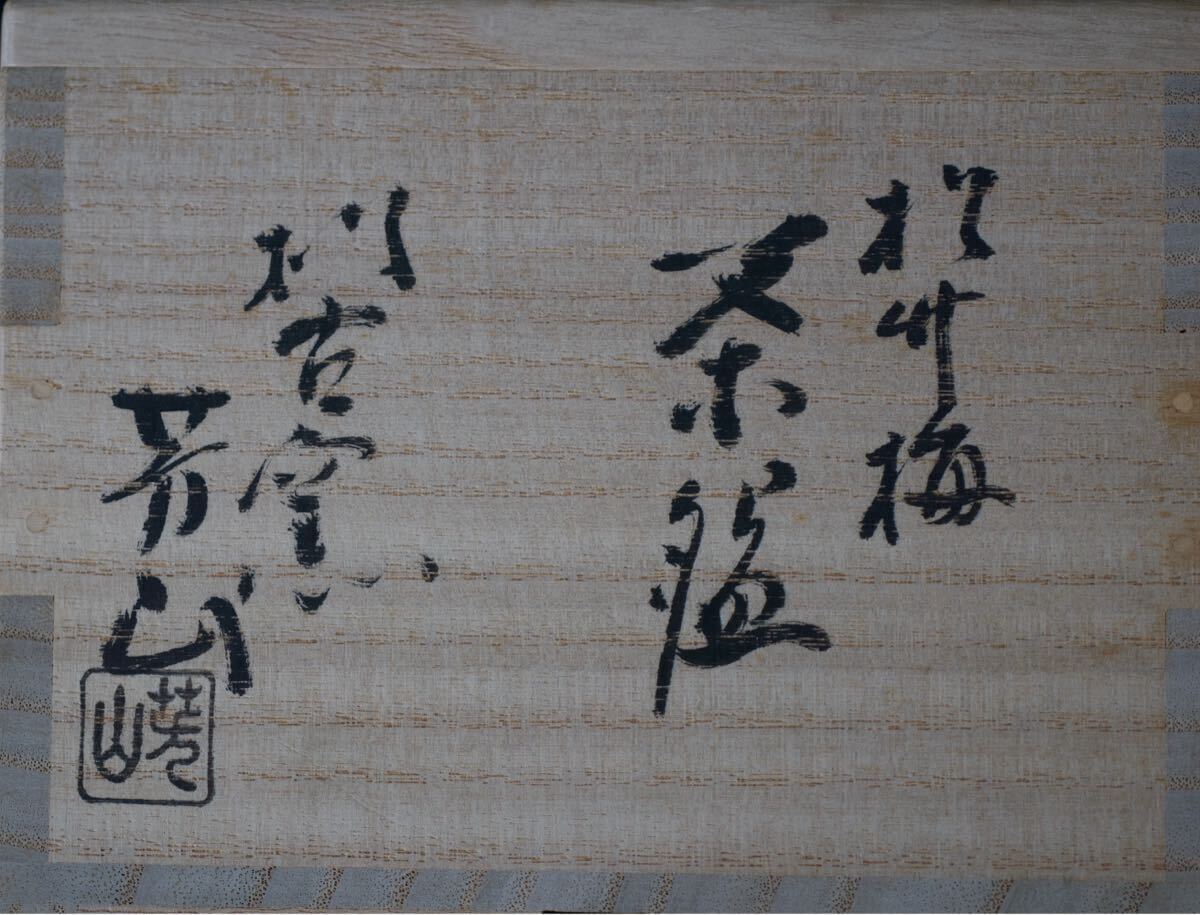 松竹梅
茶碗
松古窯
芳山
芳山